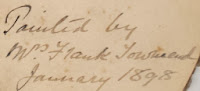 Painted by
Mrs Frank Townsend
January 1898